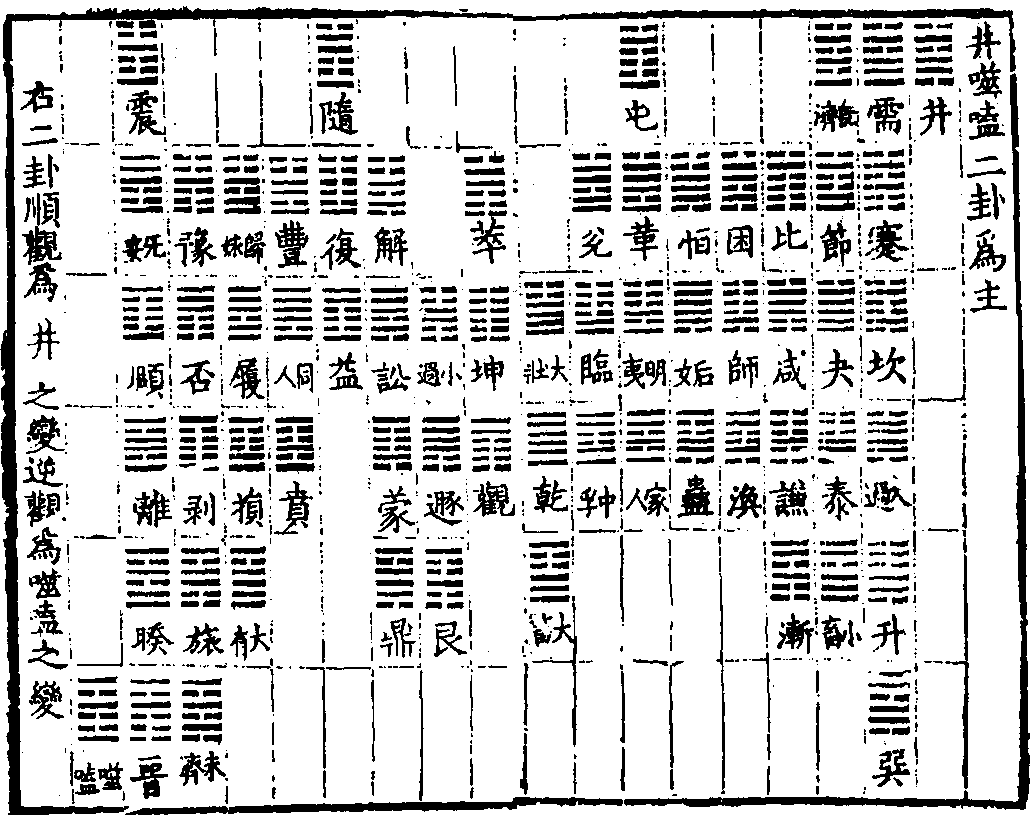 井噬嗑二卦為主
井 需 既濟 屯 隨 震
蹇 節 比 困 恒 革 兌 萃 解 復 豐 歸妹 豫 无妄
坎 夬 咸 師 姤 明夷 臨 大壯 坤 小過 訟 益 同人 履 否 頤
大過 泰 謙 渙 蠱 家人 中孚 乾 觀 遯 蒙 賁 損 剥 離
升 小畜 漸 大畜 艮 鼎 大有 旅 睽
巽 未濟 晉 噬嗑
右二卦順觀為井之變逆觀為噬嗑之變